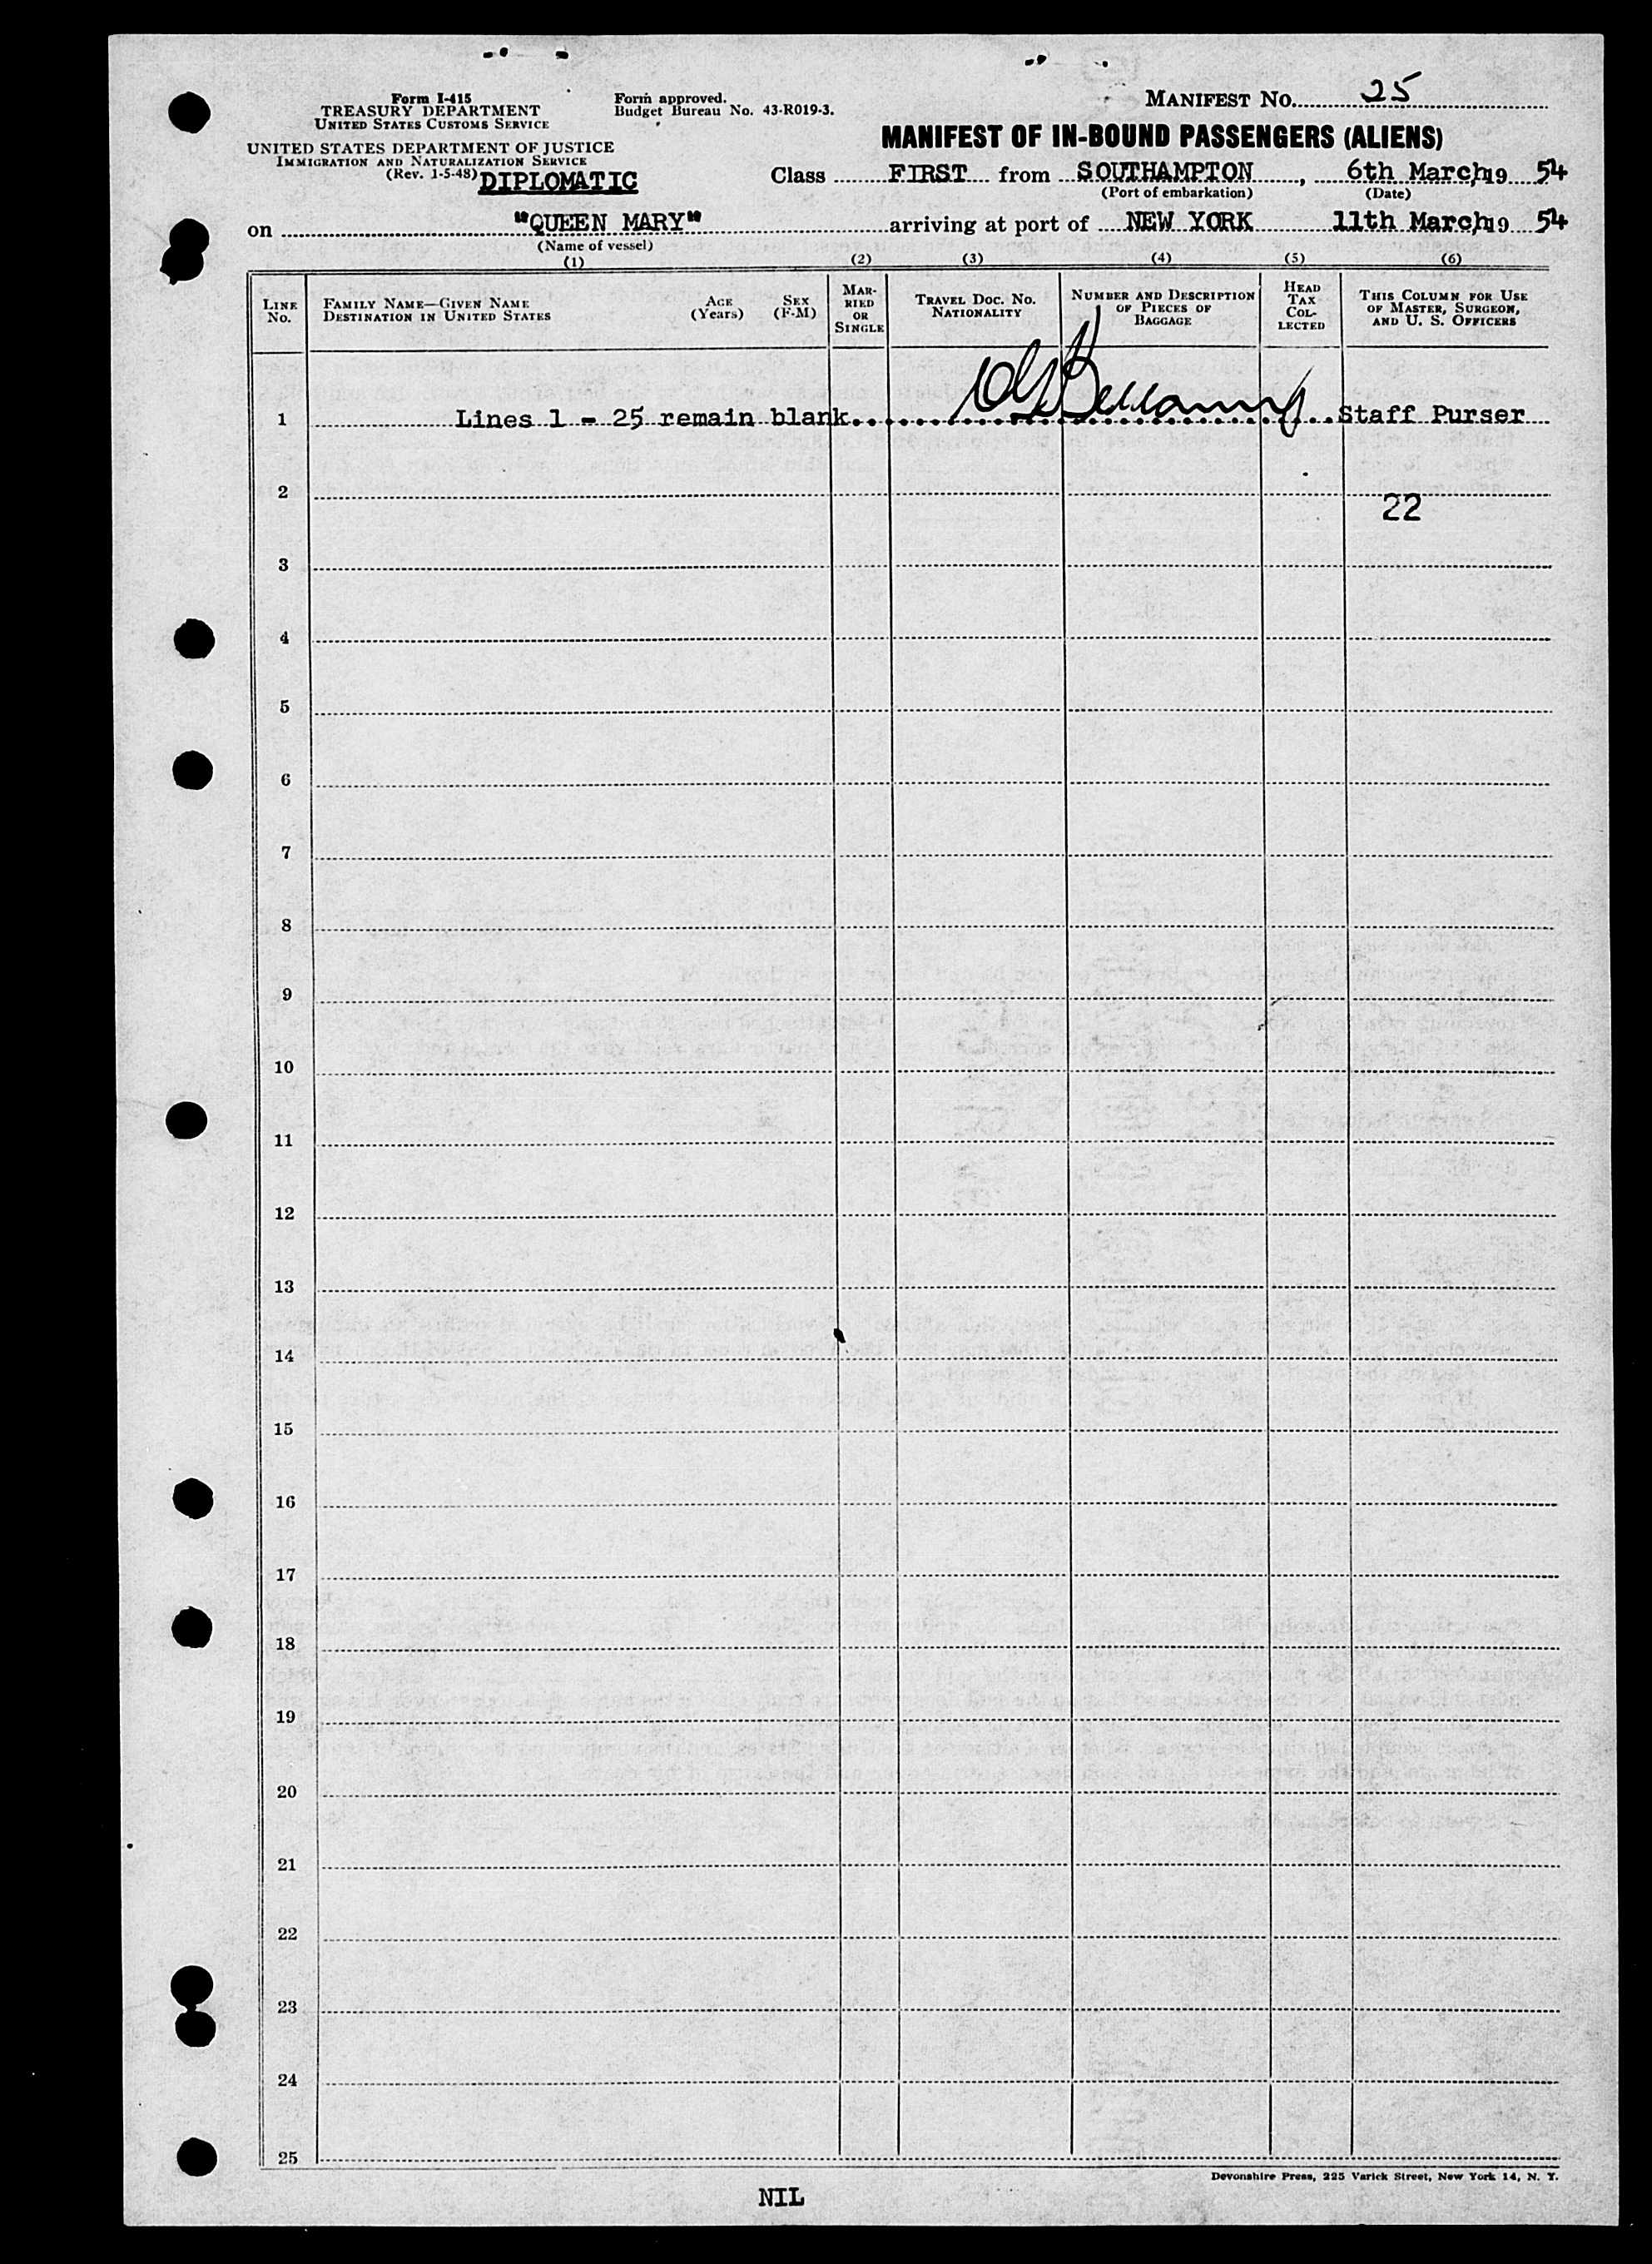 Form I-415
TREASURY DEPARTMENT
UNITED STATES CUSTOMS SERVICE
UNITED STATES DEPARTMENT OF JUSTICE
IMMIGRATION AND NATURALIZATION SERVICE
(Rev. 1-5-48) DIPLOMATIC
Form approved.
Budget Bureau No. 43-R019-3.
MANIFEST NO. 25
MANIFEST OF IN-BOUND PASSENGERS (ALIENS)
Class FIRST from SOUTHAMPTON, 6th March, 19 54
(Port of embarkation) (Date)
on "QUEEN MARY" arriving at port of NEW YORK 11th March, 19 54
(Name of vessel)
(1) (2) (3) (4) (5) (6)
LINE NO.
FAMILY NAME—GIVEN NAME
DESTINATION IN UNITED STATES
AGE (Years)
SEX (F-M)
MARRIED OR SINGLE
TRAVEL DOC. NO.
NATIONALITY
NUMBER AND DESCRIPTION OF PIECES OF BAGGAGE
HEAD TAX COLLECTED
THIS COLUMN FOR USE OF MASTER, SURGEON, AND U. S. OFFICERS
1 Lines 1 - 25 remain blank. Bellamy Staff Purser
2
22
3
4
5
6
7
8
9
10
11
12
13
14
15
16
17
18
19
20
21
22
23
24
25
Devonshire Press, 225 Varick Street, New York 14, N. Y.
NIL